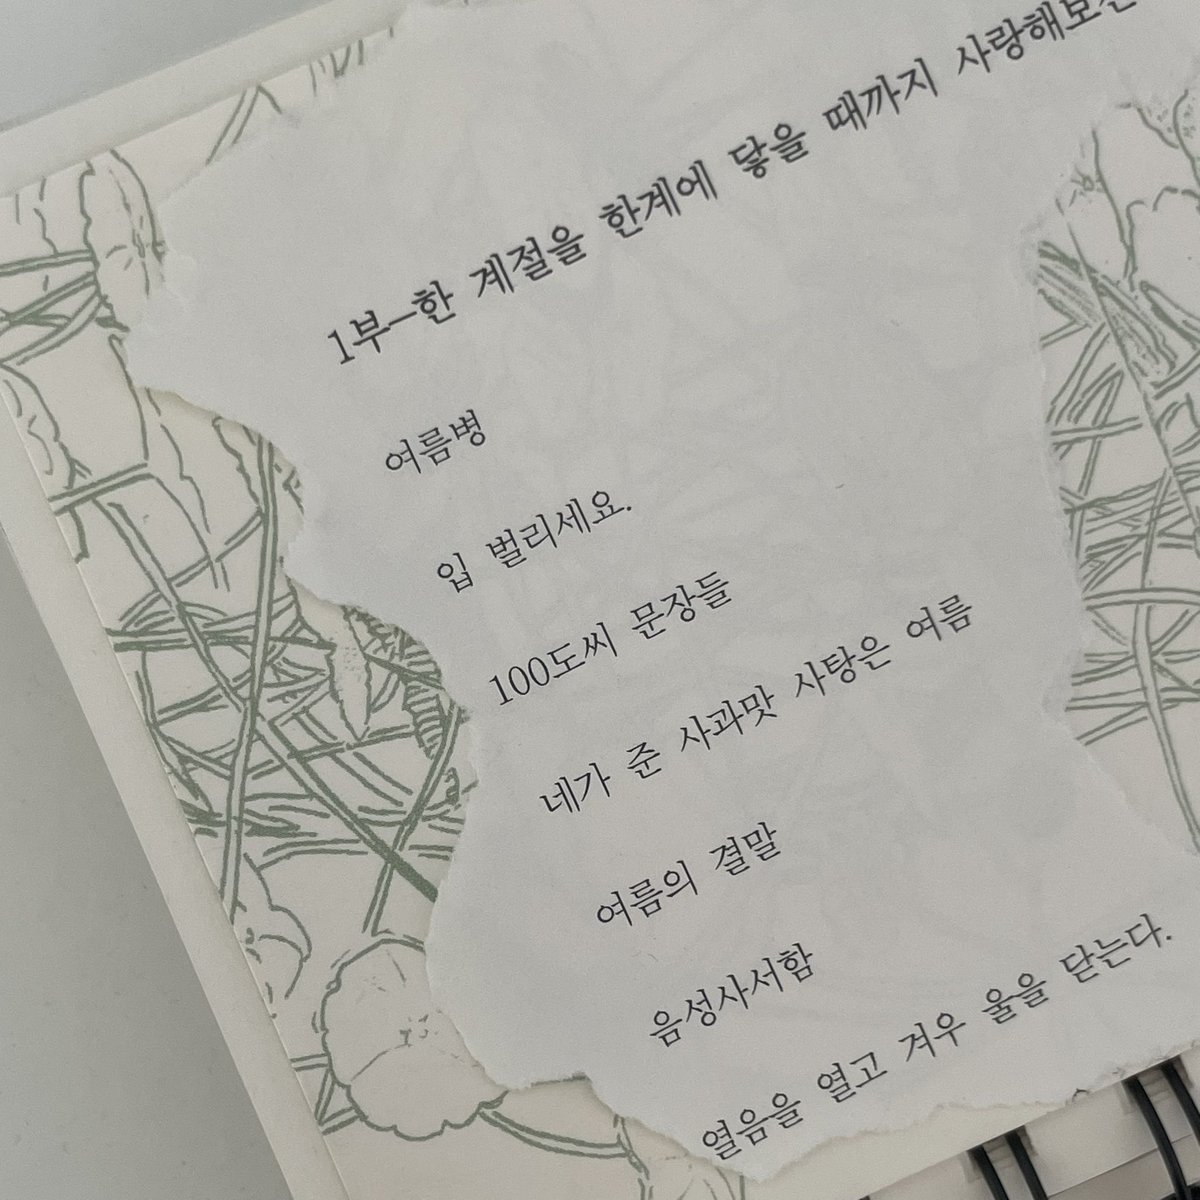 1부—한 계절을 한계에 닿을 때까지 사랑해보는
여름병
입 벌리세요.
100도씨 문장들
네가 준 사과맛 사탕은 여름
여름의 결말
음성사서함
열음을 열고 겨우 울을 닫는다.